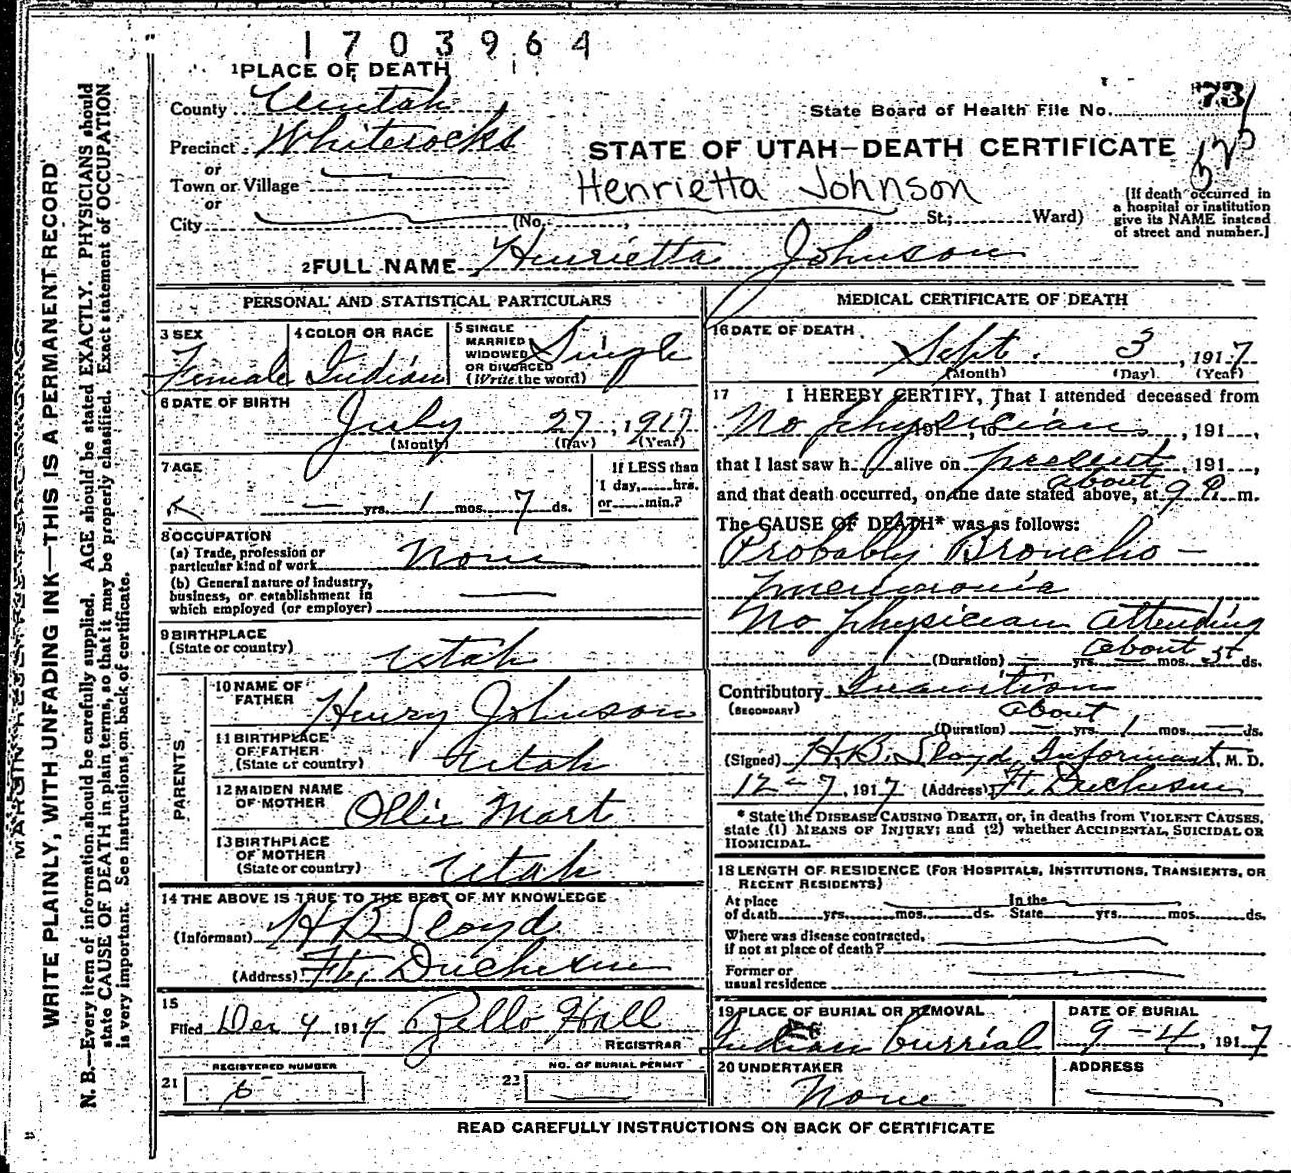 1703964
1 PLACE OF DEATH
County Uintah
State Board of Health File No. 73
525
Precinct Whiterocks
STATE OF UTAH—DEATH CERTIFICATE
or
Town or Village
Henrietta Johnson
or
City (No. , St.; Ward)
[If death occurred in
a hospital or institution
give its NAME instead
of street and number.]
2 FULL NAME Henrietta Johnson
PERSONAL AND STATISTICAL PARTICULARS
3 SEX
Female
4 COLOR OR RACE
Indian
5 SINGLE
MARRIED
WIDOWED
OR DIVORCED
(Write the word)
Single
6 DATE OF BIRTH
July 27, 1917
(Month) (Day) (Year)
7 AGE
— yrs. 1 mos. 7 ds.
If LESS than
1 day, hrs.
or min.?
8 OCCUPATION
(a) Trade, profession or
particular kind of work None
(b) General nature of industry,
business, or establishment in
which employed (or employer)
9 BIRTHPLACE
(State or country)
Utah
PARENTS
10 NAME OF
FATHER
Henry Johnson
11 BIRTHPLACE
OF FATHER
(State or country)
Utah
12 MAIDEN NAME
OF MOTHER
Ollie Mart
13 BIRTHPLACE
OF MOTHER
(State or country)
Utah
14 THE ABOVE IS TRUE TO THE BEST OF MY KNOWLEDGE
(Informant) H B Lloyd
(Address) Ft. Duchesne
15
Filed Dec 7 1917 Zello Hall
REGISTRAR
REGISTERED NUMBER
21 6
NO. OF BURIAL PERMIT
22
MEDICAL CERTIFICATE OF DEATH
16 DATE OF DEATH
Sept. 3, 1917
(Month) (Day) (Year)
17 I HEREBY CERTIFY, That I attended deceased from
No physician 191 , to , 191 ,
that I last saw h alive on present, 191 ,
about
and that death occurred, on the date stated above, at 9 P. m.
The CAUSE OF DEATH* was as follows:
Probably Broncho—
pneumonia
No physician attending
about
(Duration) — yrs. — mos. 5 ds.
Contributory Inanition
(SECONDARY)
about
(Duration) yrs. 1 mos. — ds.
(Signed) H.B. Lloyd, Informant, M. D.
12-7, 1917 (Address) Ft. Duchesne
* State the DISEASE CAUSING DEATH, or, in deaths from VIOLENT CAUSES,
state (1) MEANS OF INJURY; and (2) whether ACCIDENTAL, SUICIDAL OR
HOMICIDAL.
18 LENGTH OF RESIDENCE (FOR HOSPITALS, INSTITUTIONS, TRANSIENTS, OR
RECENT RESIDENTS)
At place In the
of death yrs. mos. ds. State yrs. mos. ds.
Where was disease contracted,
if not at place of death?
Former or
usual residence
19 PLACE OF BURIAL OR REMOVAL
Indian burrial
DATE OF BURIAL
9-4, 1917
20 UNDERTAKER
None
ADDRESS
READ CAREFULLY INSTRUCTIONS ON BACK OF CERTIFICATE
WRITE PLAINLY, WITH UNFADING INK—THIS IS A PERMANENT RECORD
N. B.—Every item of information should be carefully supplied. AGE should be stated EXACTLY. PHYSICIANS should
state CAUSE OF DEATH in plain terms, so that it may be properly classified. Exact statement of OCCUPATION
is very important. See instructions on back of certificate.